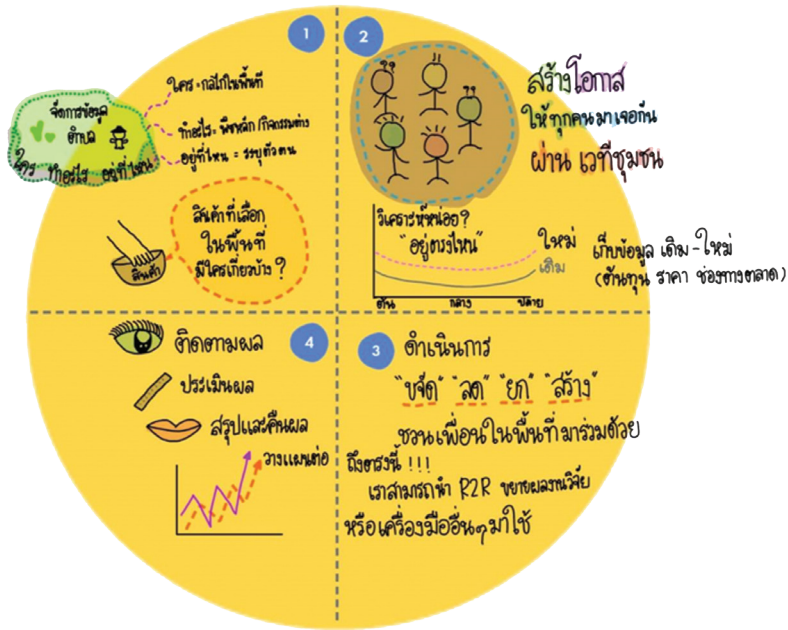 1
ใคร = กลไกในพื้นที่
จัดการข้อมูล
ตำบล
ทำอะไร = พืชหลัก/กิจกรรมต่าง
ใคร ทำอะไร อยู่ที่ไหน
อยู่ที่ไหน = ระบุตัวตน
สินค้าที่เลือก
ในพื้นที่
มีใครเกี่ยวบ้าง ?
สินค้า
2
สร้างโอกาส
ให้ทุกคนมาเจอกัน
ผ่าน เวทีชุมชน
วิเคราะห์หน่อย ?
"อยู่ตรงไหน"
ใหม่
เดิม
ต้น กลาง ปลาย
เก็บข้อมูล เดิม-ใหม่
(ต้นทุน ราคา ช่องทางตลาด)
3
ดำเนินการ
"ขจัด" "ลด" "ยก" "สร้าง"
ชวนเพื่อนในพื้นที่มาร่วมด้วย
ถึงตรงนี้ !!!
เราสามารถนำ R2R ขยายผลงานวิจัย
หรือเครื่องมืออื่นๆมาใช้
4
ติดตามผล
ประเมินผล
สรุปและคืนผล
วางแผนต่อ